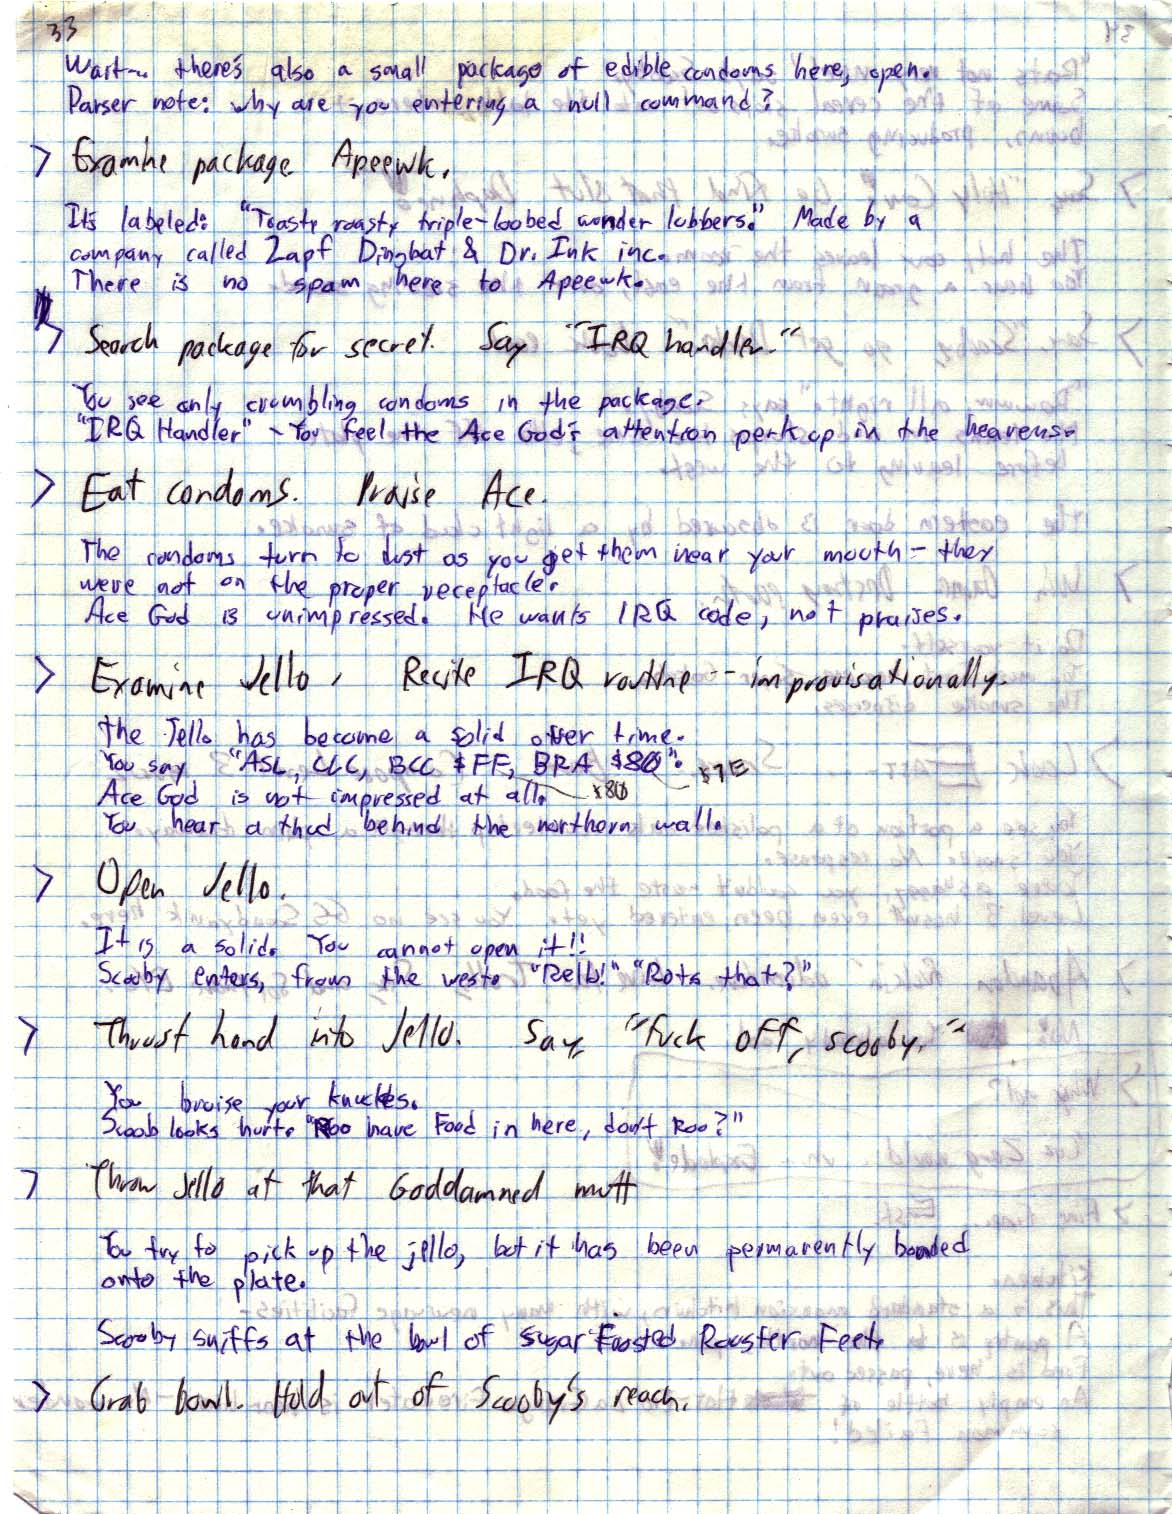 33
Wait... there's also a small package of edible condoms here, open.
Parser note: why are you entering a null command?
> Examine package. Apeewk.
It's labeled: "Toasty roasty triple-loobed wonder lubbers." Made by a
company called Zapf Dingbat & Dr. Ink inc.
There is no spam here to Apeewk.
> Search package for secret. Say "IRQ handler."
You see only crumbling condoms in the package.
"IRQ Handler" - You feel the Ace God's attention perk up in the heavens.
> Eat condoms. Praise Ace.
The condoms turn to dust as you get them near your mouth - they
were not on the proper receptacle.
Ace God is unimpressed. He wants IRQ code, not praises.
> Examine Jello, Recite IRQ routine -- improvisationally.
The Jello has become a solid over time.
You say "ASL, CLC, BCC $FF, BRA $80". $7E
Ace God is not impressed at all. $80
You hear a thud behind the northern wall.
> Open Jello.
It is a solid. You cannot open it!!
Scooby enters, from the west. "Relb!" "Rots that?"
> Thrust hand into Jello. Say, "fuck off, scooby."
You bruise your knuckles.
Scoob looks hurt. "Roo have Food in here, don't Roo?"
> Throw Jello at that Goddamned mutt
You try to pick up the jello, but it has been permanently bonded
onto the plate.
Scooby sniffs at the bowl of sugar Frosted Rooster Feet.
> Grab bowl. Hold out of Scooby's reach.